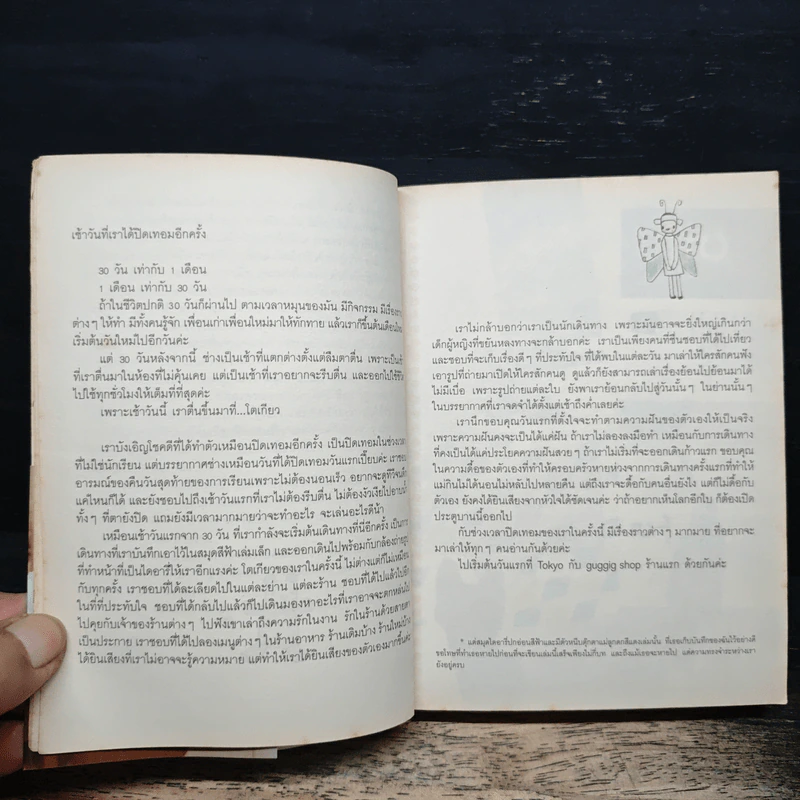 เช้าวันที่เราได้ปิดเทอมอีกครั้ง
30 วัน เท่ากับ 1 เดือน
1 เดือน เท่ากับ 30 วัน
ถ้าในชีวิตปกติ 30 วันก็ผ่านไป ตามเวลาหมุนของมัน มีกิจกรรม มีเรื่อง
ต่างๆ ให้ทำ มีทั้งคนรู้จัก เพื่อนเก่าเพื่อนใหม่มาให้ทักทาย แล้วเราก็ขึ้นต้นเดือนใหม่
เริ่มต้นวันใหม่ไปอีกวันค่ะ
แต่ 30 วันหลังจากนี้ ช่างเป็นเช้าที่แตกต่างตั้งแต่ลืมตาตื่น เพราะเป็น
ที่เราตื่นมาในห้องที่ไม่คุ้นเคย แต่เป็นเช้าที่เราอยากจะรีบตื่น และออกไปใช้
ไปใช้ทุกชั่วโมงให้เต็มที่ที่สุดค่ะ
เพราะเช้าวันนี้ เราตื่นขึ้นมาที่...โตเกียว
เราบังเอิญโชคดีที่ได้ทำตัวเหมือนปิดเทอมอีกครั้ง เป็นปิดเทอมในช่วง
ที่ไม่ใช่นักเรียน แต่บรรยากาศช่างเหมือนวันที่ได้ปิดเทอมวันแรกเปี๊ยบค่ะ
อารมณ์ของคืนวันสุดท้ายของการเรียนเพราะไม่ต้องนอนเร็ว อยากจะดูทีวีจนดึก
แค่ไหนก็ได้ และยังชอบไปถึงเช้าวันแรกที่เราไม่ต้องรีบตื่น ไม่ต้องงัวเงียไปอาบน้ำ
ทั้งๆ ที่ตายังปิด แถมยังมีเวลามากมายว่าจะทำอะไร จะเล่นอะไรดีน้า
เหมือนเช้าวันแรกจาก 30 วัน ที่เรากำลังจะเริ่มต้นเดินทางที่นี่อีกครั้ง เป็นการ
เดินทางที่เราบันทึกเอาไว้ในสมุดสีฟ้าเล่มเล็ก และออกเดินไปพร้อมกับกล้องถ่ายรูป
ที่ทำหน้าที่เป็นไดอารี่ให้เราอีกแรงค่ะ โตเกียวในครั้งนี้ ไม่ต่างแต่ก็ไม่เหมือน
กับทุกครั้ง เราชอบที่ได้ละเลียดไปในแต่ละย่าน แต่ละร้าน ชอบที่ได้ไปแล้วไปอีก
ในที่ที่ประทับใจ ชอบที่ได้กลับไปแล้วก็ไปเดินมองหาอะไรที่เราอาจจะตกหล่น
ไปคุยกับเจ้าของร้านต่างๆ ไปฟังเขาเล่าถึงความรักในงาน รักในร้านด้วยสายตา
เป็นประกาย เราชอบที่ได้ไปลองเมนูต่างๆ ในร้านอาหาร ร้านเดิมบ้าง ร้านใหม่บ้าง
ได้ยินเสียงที่เราไม่อาจจะรู้ความหมาย แต่ทำให้เราได้ยินเสียงของตัวเองมากขึ้นค่ะ
เราไม่กล้าบอกว่าเราเป็นนักเดินทาง เพราะมันอาจจะยิ่งใหญ่เกินกว่า
เด็กผู้หญิงที่ขยันหลงทางจะกล้าบอกค่ะ เราเป็นเพียงคนที่ชื่นชอบที่ได้ไปเที่ยว
และชอบที่จะเก็บเรื่องดีๆ ที่ประทับใจ ที่ได้พบในแต่ละวัน มาเล่าให้ใครสักคนฟัง
เอารูปที่ถ่ายมาเปิดให้ใครสักคนดู ดูแล้วก็ยังสามารถเล่าเรื่องย้อนไปย้อนมาได้
ไม่มีเบื่อ เพราะรูปถ่ายแต่ละใบ ยังพาเราย้อนกลับไปสู่วันนั้นๆ ในย่านนั้นๆ
ในบรรยากาศที่เราจดจำได้ตั้งแต่เช้าถึงค่ำเลยค่ะ
เรานึกขอบคุณวันแรกที่ตั้งใจจะทำตามความฝันของตัวเองให้เป็นจริง
เพราะความฝันคงจะเป็นได้แค่ฝัน ถ้าเราไม่ลองลงมือทำ เหมือนกับการเดินทาง
ที่คงเป็นได้แค่ประโยคความฝันสวยๆ ถ้าเราไม่เริ่มที่จะออกเดินก้าวแรก ขอบคุณ
ในความดื้อของตัวเองที่ทำให้ครอบครัวหายห่วงจากการเดินทางครั้งแรกที่ทำให้
แม่กินไม่ได้นอนไม่หลับไปหลายคืน แต่ถึงเราจะดื้อกับคนอื่นยังไง แต่ก็ไม่ดื้อกับ
ตัวเอง ยังคงได้ยินเสียงจากหัวใจได้ชัดเจนค่ะ ว่าถ้าอยากเห็นโลกอีกใบ ก็ต้องเปิด
ประตูบานนี้ออกไป
กับช่วงเวลาปิดเทอมของเราในครั้งนี้ มีเรื่องราวต่างๆ มากมาย ที่อยากจะ
มาเล่าให้ทุกๆ คนอ่านกันด้วยค่ะ
ไปเริ่มต้นวันแรกที่ Tokyo กับ guggig shop ร้านแรก ด้วยกันค่ะ
* แต่สมุดไดอารี่ปกอ่อนสีฟ้าและมีตัวหนีบตุ๊กตาแม่ลูกดกสีแดงเล่มนั้น ที่เธอเก็บบันทึกของฉันไว้อย่างดี
ขอโทษที่ทำเธอหายไปก่อนที่จะเขียนเล่มนี้เสร็จเพียงไม่กี่บท และถึงแม้เธอจะหายไป แต่ความทรงจำระหว่างเรา
ยังอยู่ครบ